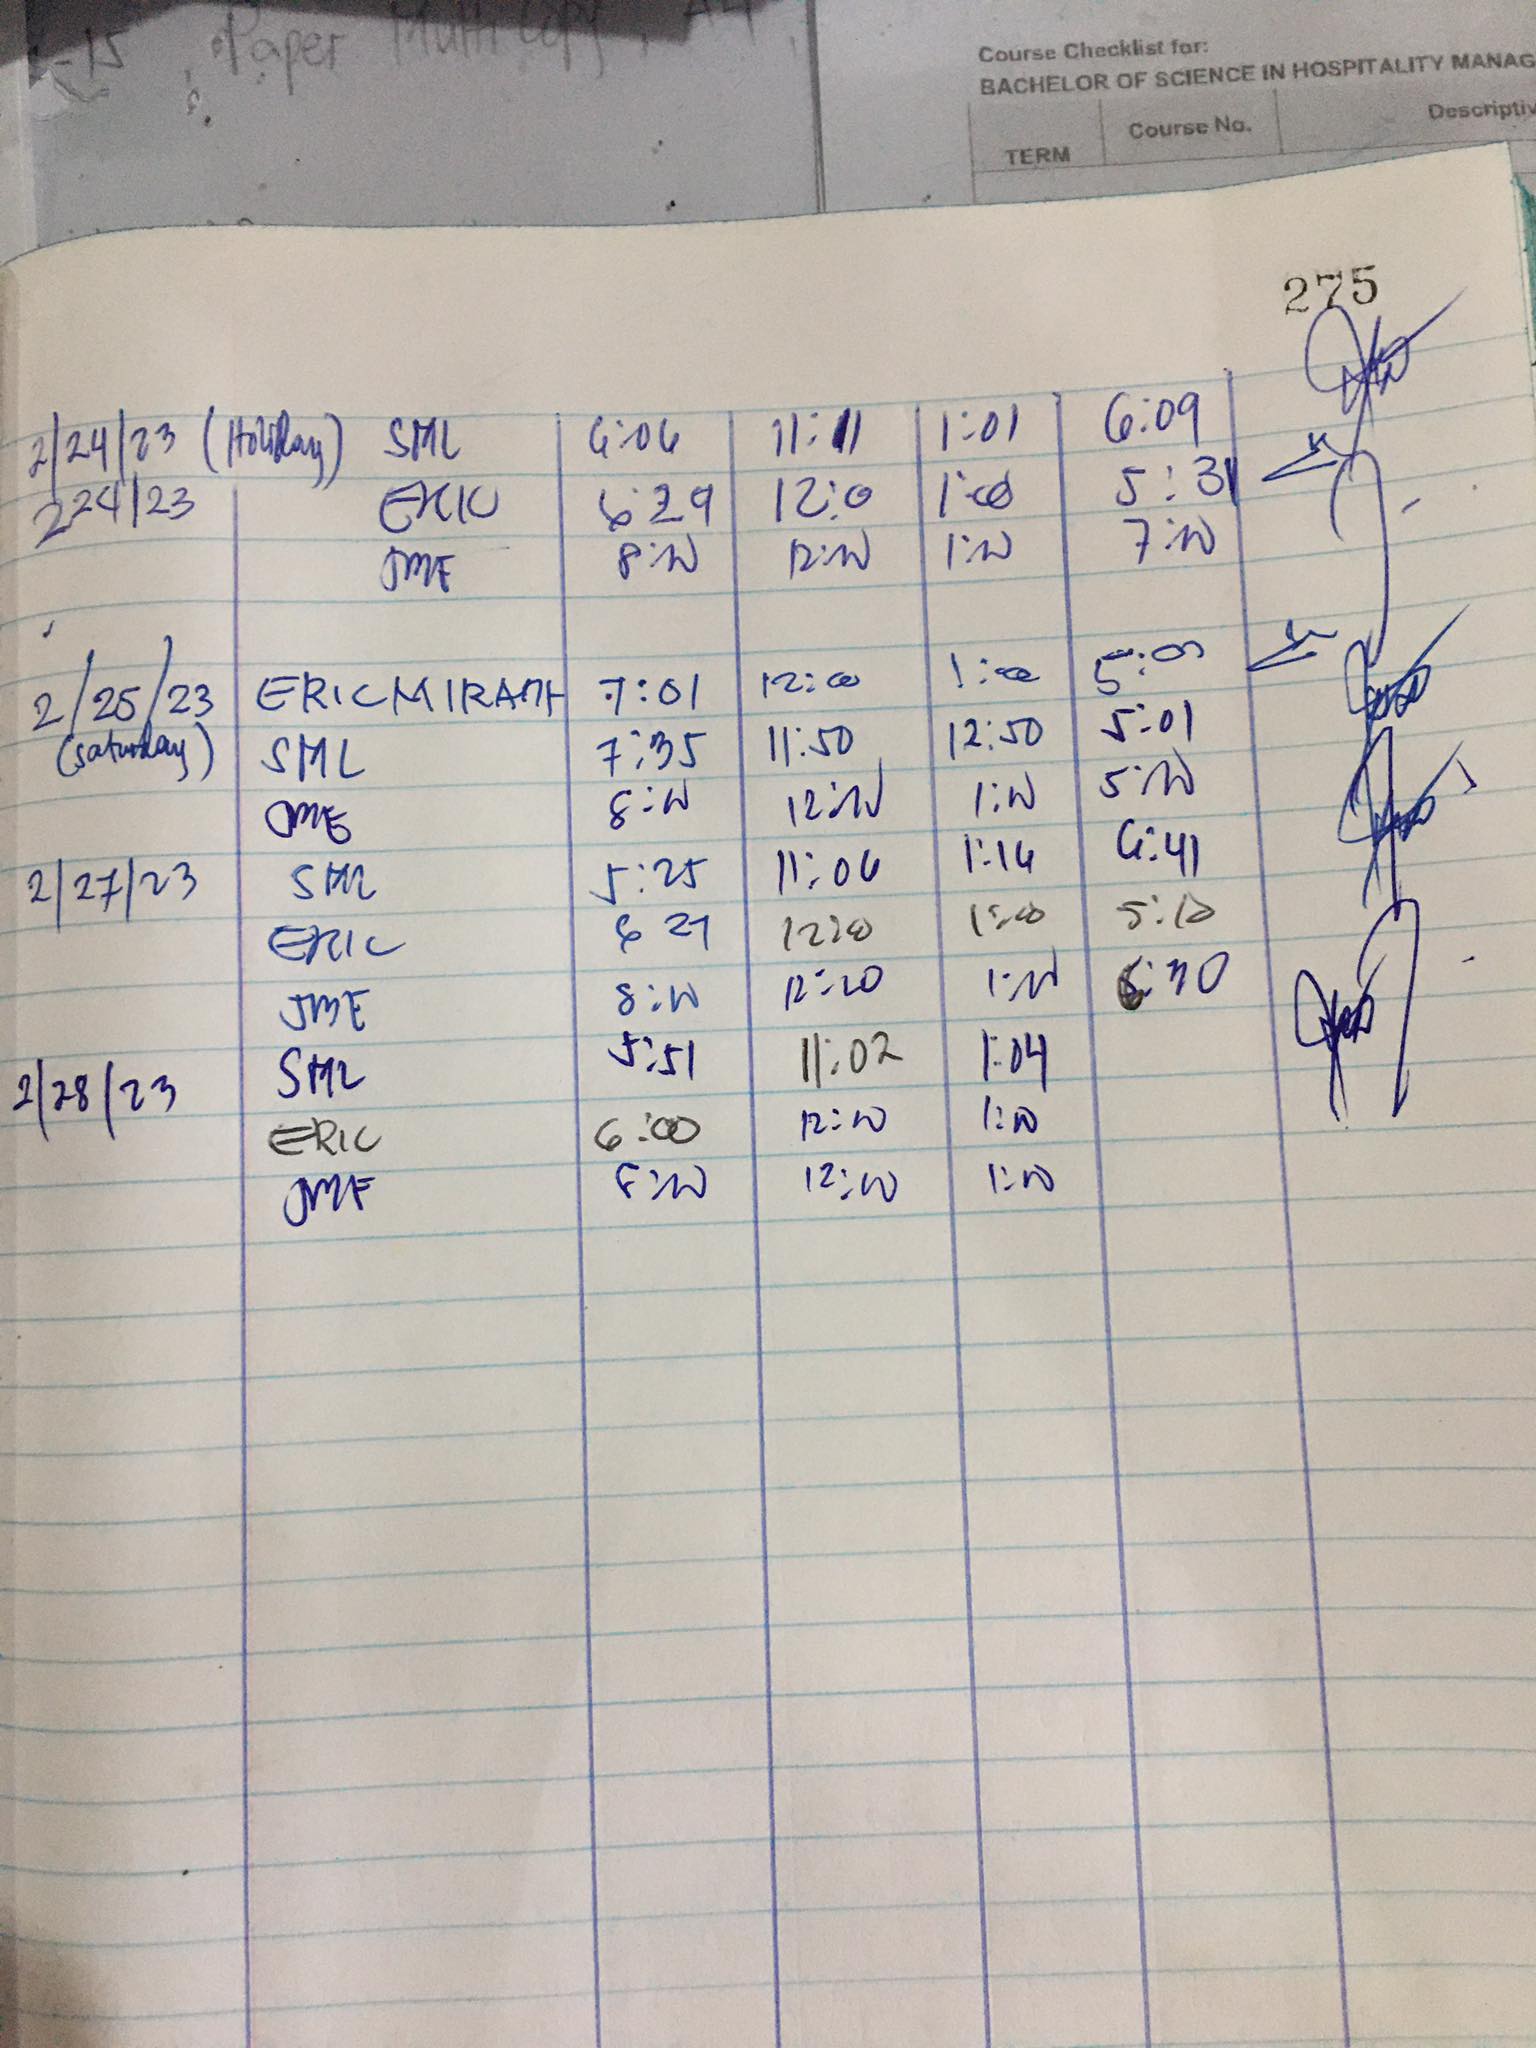 Paper Multi Copy, A4
Course Checklist for:
BACHELOR OF SCIENCE IN HOSPITALITY MANAG
TERM Course No. Descriptiv
275
2/24/23 (Holiday) SML 6:06 11:11 1:01 6:09
224/23 ERIC 6:29 12:0 1:00 5:31
JME 8:00 12:00 1:00 7:00
2/25/23 ERIC MIRANDA 7:01 12:00 1:00 5:00
(Saturday) SML 7:35 11:50 12:50 5:01
JME 8:00 12:00 1:00 5:00
2/27/23 SML 5:25 11:06 1:16 6:41
ERIC 12:00 1:00 5:10
JME 8:00 1:00
2/28/23 SML 5:51 11:02 1:04
ERIC 6:00 12:00 1:00
JME 8:00 12:00 1:00